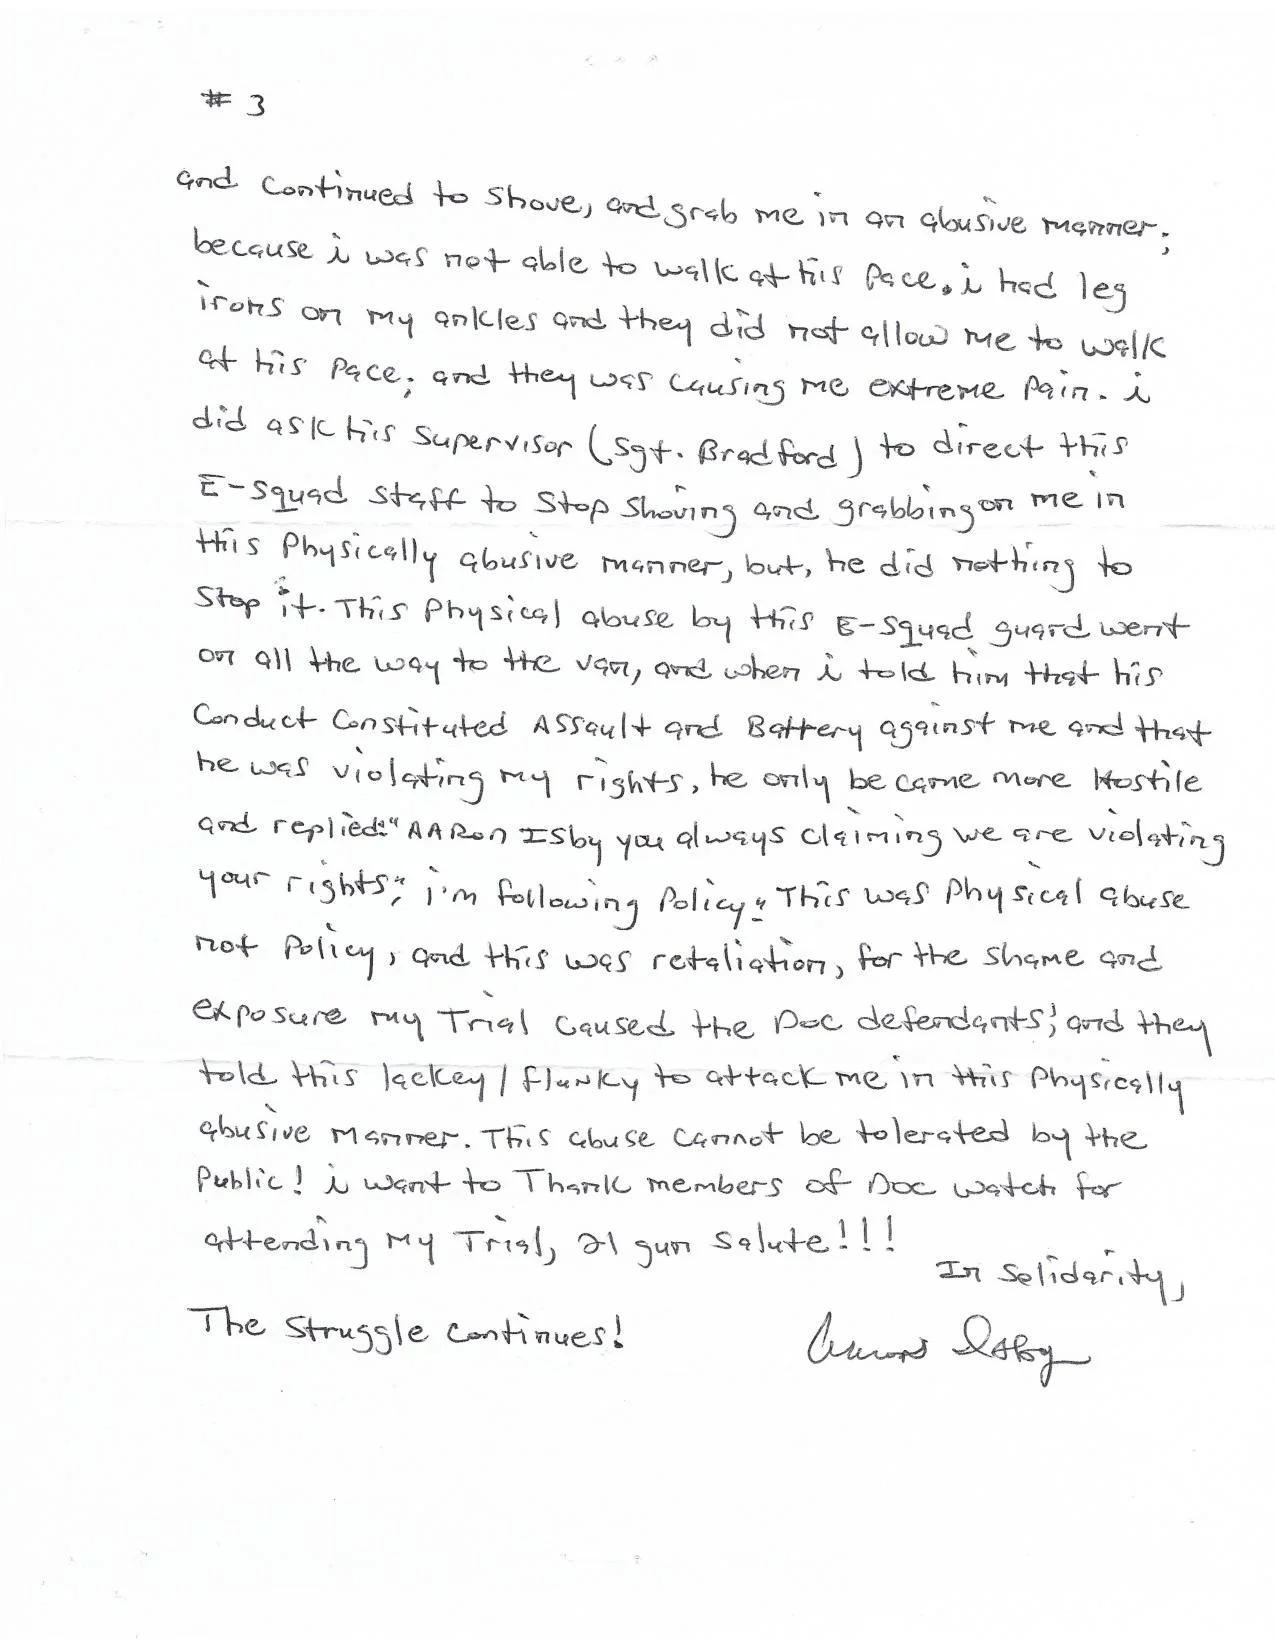 # 3
and continued to shove, and grab me in an abusive manner;
because i was not able to walk at his Pace. i had leg
irons on my ankles and they did not allow me to walk
at his Pace; and they was causing me extreme Pain. i
did ask his supervisor (Sgt. Bradford) to direct this
E-squad staff to stop shoving and grabbing on me in
this Physically abusive manner, but, he did nothing to
stop it. This Physical abuse by this E-squad guard went
on all the way to the van, and when i told him that his
Conduct Constituted Assault and Battery against me and that
he was violating my rights, he only became more Hostile
and replied:" AARon ISby you always claiming we are violating
your rights", i'm following Policy" This was Physical abuse
not Policy, and this was retaliation, for the shame and
exposure my Trial caused the DOC defendants; and they
told this lackey/flunky to attack me in this Physically
abusive manner. This abuse cannot be tolerated by the
Public! i want to Thank members of DOC watch for
attending My Trial, 21 gun salute!!!
In Solidarity,
The Struggle continues!
Aaron Isby